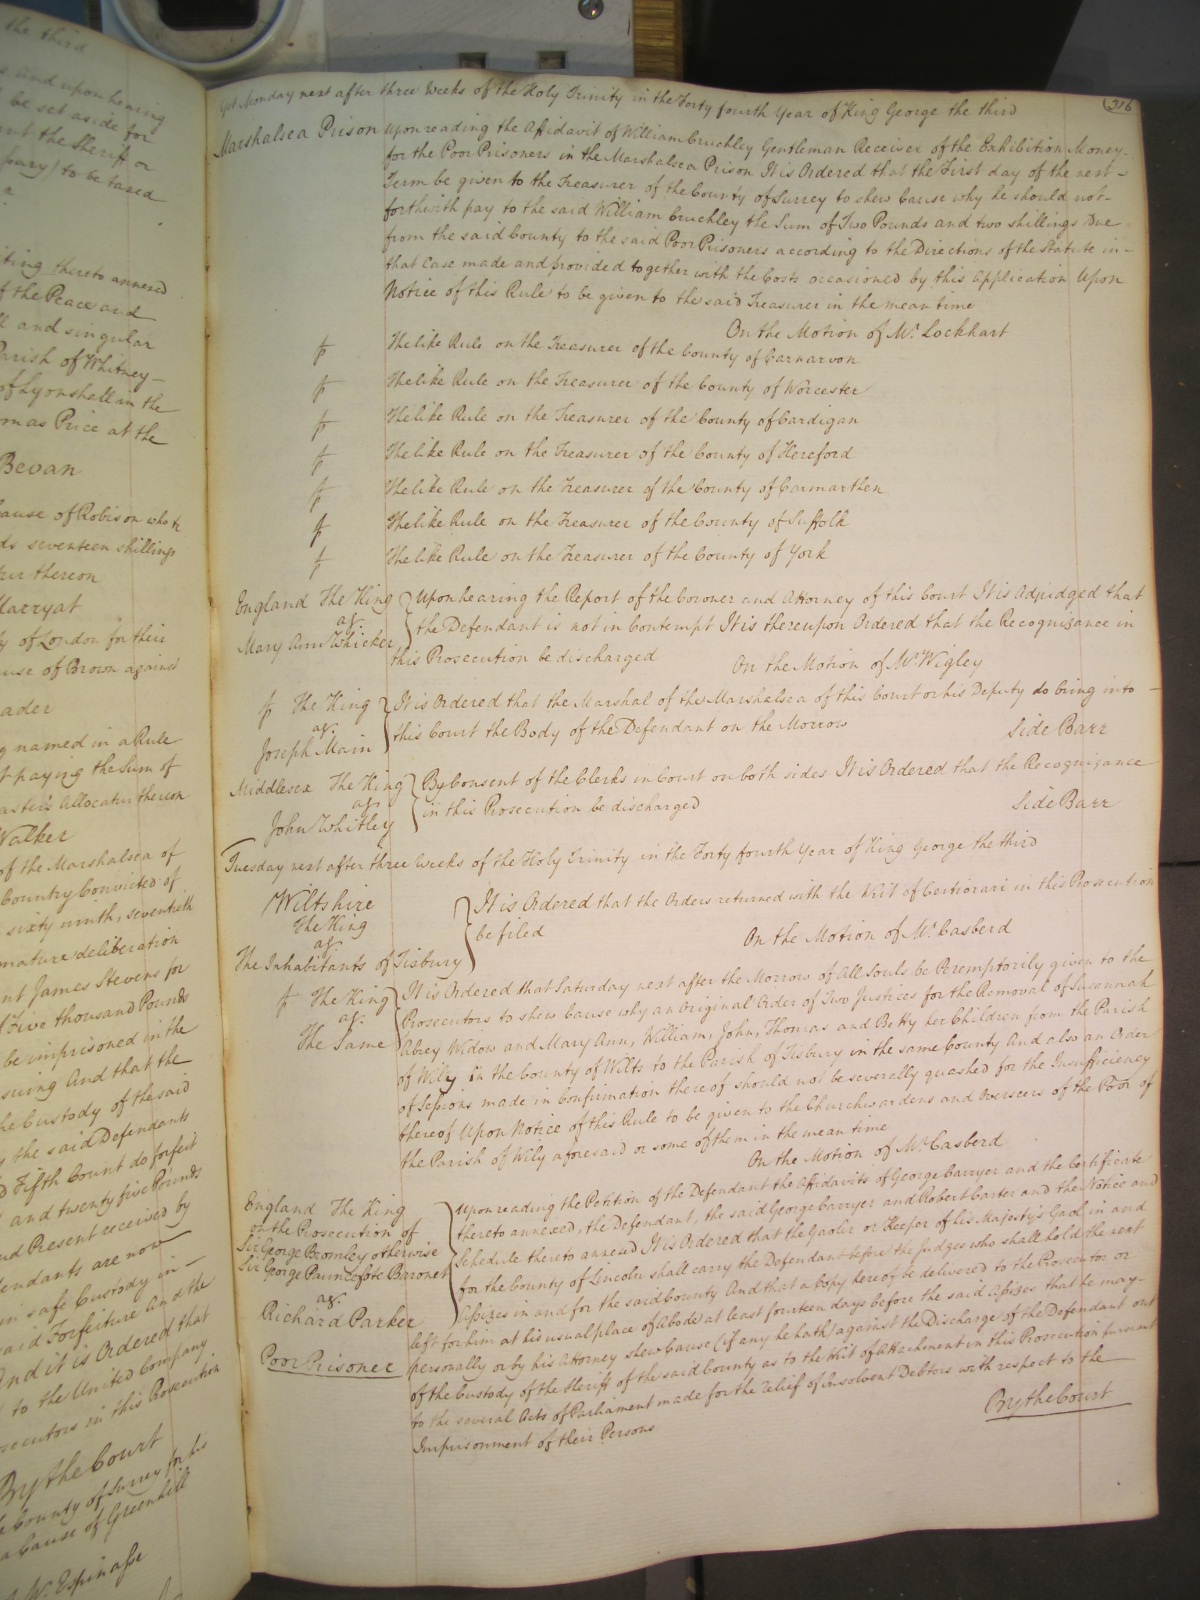 the third
s and upon hearing
be set aside for
the Sheriff or
pury) to be taxed
iting thereto annexed
f the Peace and
ll and singular
Parish of Whitney
of Lyonshall in the
mas Price at the
Bevan
ause of Robison who to
ds seventeen shillings
tur thereon
Marryat
y of London for their
ause of Brown against
ader
g named in a Rule
t paying the Sum of
asters Allocatur thereon
Walker
of the Marshalsea of
Country Convicted of
sixty ninth, seventieth
mature deliberation
nt James Stevens for
f Five thousand Pounds
be imprisoned in the
suing And that the
he Custody of the said
y the said Defendants
d Fifth Count do forfeit
and twenty five Pounds
nd Present received by
fendants are now
in safe Custody in
aid Forfeiture And the
And it is Ordered that
to the United Company
secutors in this Prosecution
By the Court
County of Surrey for his
a Cause of Greenhill
Mr. Espinasse
316
Yet Monday next after three Weeks of the Holy Trinity in the Forty fourth Year of King George the third
Marshalsea Prison Upon reading the Affidavit of William Cruchley Gentleman Receiver of the Exhibition Money
for the Poor Prisoners in the Marshalsea Prison It is Ordered that the First day of the next
Term be given to the Treasurer of the County of Surrey to shew Cause why he should not
forthwith pay to the said William Cruchley the Sum of Two Pounds and two shillings Due
from the said County to the said Poor Prisoners according to the Directions of the Statute in
that Case made and provided together with the Costs occasioned by this Application Upon
Notice of this Rule to be given to the said Treasurer in the mean time
On the Motion of Mr. Lockhart
The like Rule on the Treasurer of the County of Carnarvon
The like Rule on the Treasurer of the County of Worcester
The like Rule on the Treasurer of the County of Cardigan
The like Rule on the Treasurer of the County of Hereford
The like Rule on the Treasurer of the County of Carmarthen
The like Rule on the Treasurer of the County of Suffolk
The like Rule on the Treasurer of the County of York
England The King
agt.
Mary Ann Whicker
Upon hearing the Report of the Coroner and Attorney of this Court It is Adjudged that
the Defendant is not in Contempt It is thereupon Ordered that the Recognizance in
this Prosecution be discharged
On the Motion of Mr. Wigley
The King
agt.
Joseph Main
It is Ordered that the Marshal of the Marshalsea of this Court or his Deputy do bring into
this Court the Body of the Defendant on the Morrow
Side Barr
Middlesex The King
agt.
John Whitley
By Consent of the Clerks in Court on both sides It is Ordered that the Recognizance
in this Prosecution be discharged
Side Barr
Tuesday next after three Weeks of the Holy Trinity in the Forty fourth Year of King George the third
Wiltshire
The King
agt.
The Inhabitants of Tisbury
It is Ordered that the Orders returned with the Writ of Certiorari in this Prosecution
be filed
On the Motion of Mr. Casberd
The King
agt.
The Same
It is Ordered that Saturday next after the Morrow of All Souls be Peremptorily given to the
Prosecutors to shew Cause why an Original Order of Two Justices for the Removal of Susannah
Abrey Widow and Mary Ann, William, John, Thomas and Betty her Children from the Parish
of Wily in the County of Wilts to the Parish of Tisbury in the same County And also an Order
of Sessions made in Confirmation thereof should not be severally quashed for the Insufficiency
thereof Upon Notice of this Rule to be given to the Churchwardens and Overseers of the Poor of
the Parish of Wily aforesaid or some of them in the mean time
On the Motion of Mr. Casberd
England The King
on the Prosecution of
Sir George Bromley otherwise
Sir George Pauncefote Baronet
agt.
Richard Parker
Poor Prisoner
Upon reading the Petition of the Defendant the Affidavits of George Carryer and the Certificate
thereto annexed, the Defendant, the said George Carryer and Robert Carter and the Notice and
Schedule thereto annexed It is Ordered that the Gaoler or Keeper of his Majesty's Gaol in and
for the County of Lincoln shall carry the Defendant before the Judges who shall hold the next
Assizes in and for the said County And that a Copy hereof be delivered to the Prosecutor or
left for him at his usual place of Abode at least fourteen days before the said Assizes that he may
personally or by his Attorney shew Cause (if any he hath) against the Discharge of the Defendant out
of the Custody of the Sheriff of the said County as to the Writ of Attachment in this Prosecution pursuant
to the several Acts of Parliament made for the relief of Insolvent Debtors with respect to the
Imprisonment of their Persons
By the Court